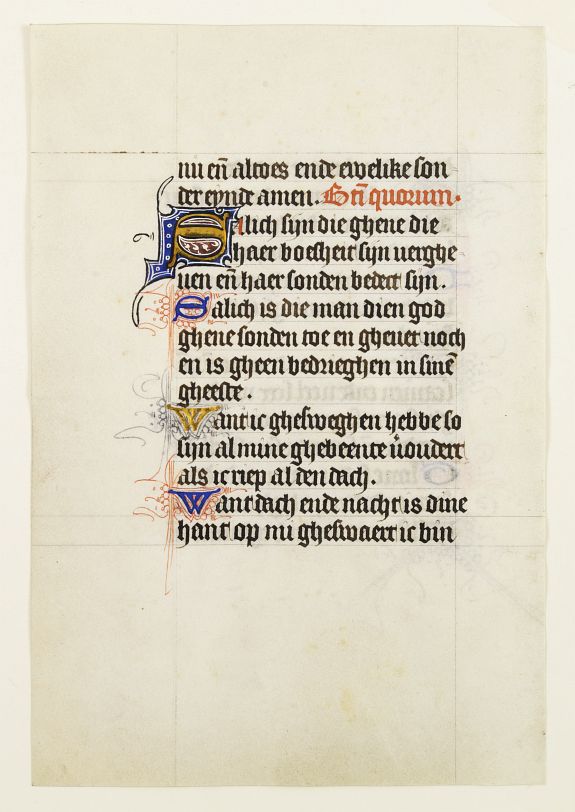 nu en̄ altoes ende ewelike son
der eynde amen. Btī quorum.
Salich sijn die ghene die
haer boesheit sijn verghe
uen en̄ haer sonden bedect sijn.
Salich is die man dien god
ghene sonden toe en gheuet noch
en is gheen bedrieghen in sinē
gheeste.
Want ic ghesweghen hebbe so
sijn al mine ghebeente v̓oudert
als ic riep al den dach.
Want dach ende nacht is dine
hant op mi gheswaert ic bin